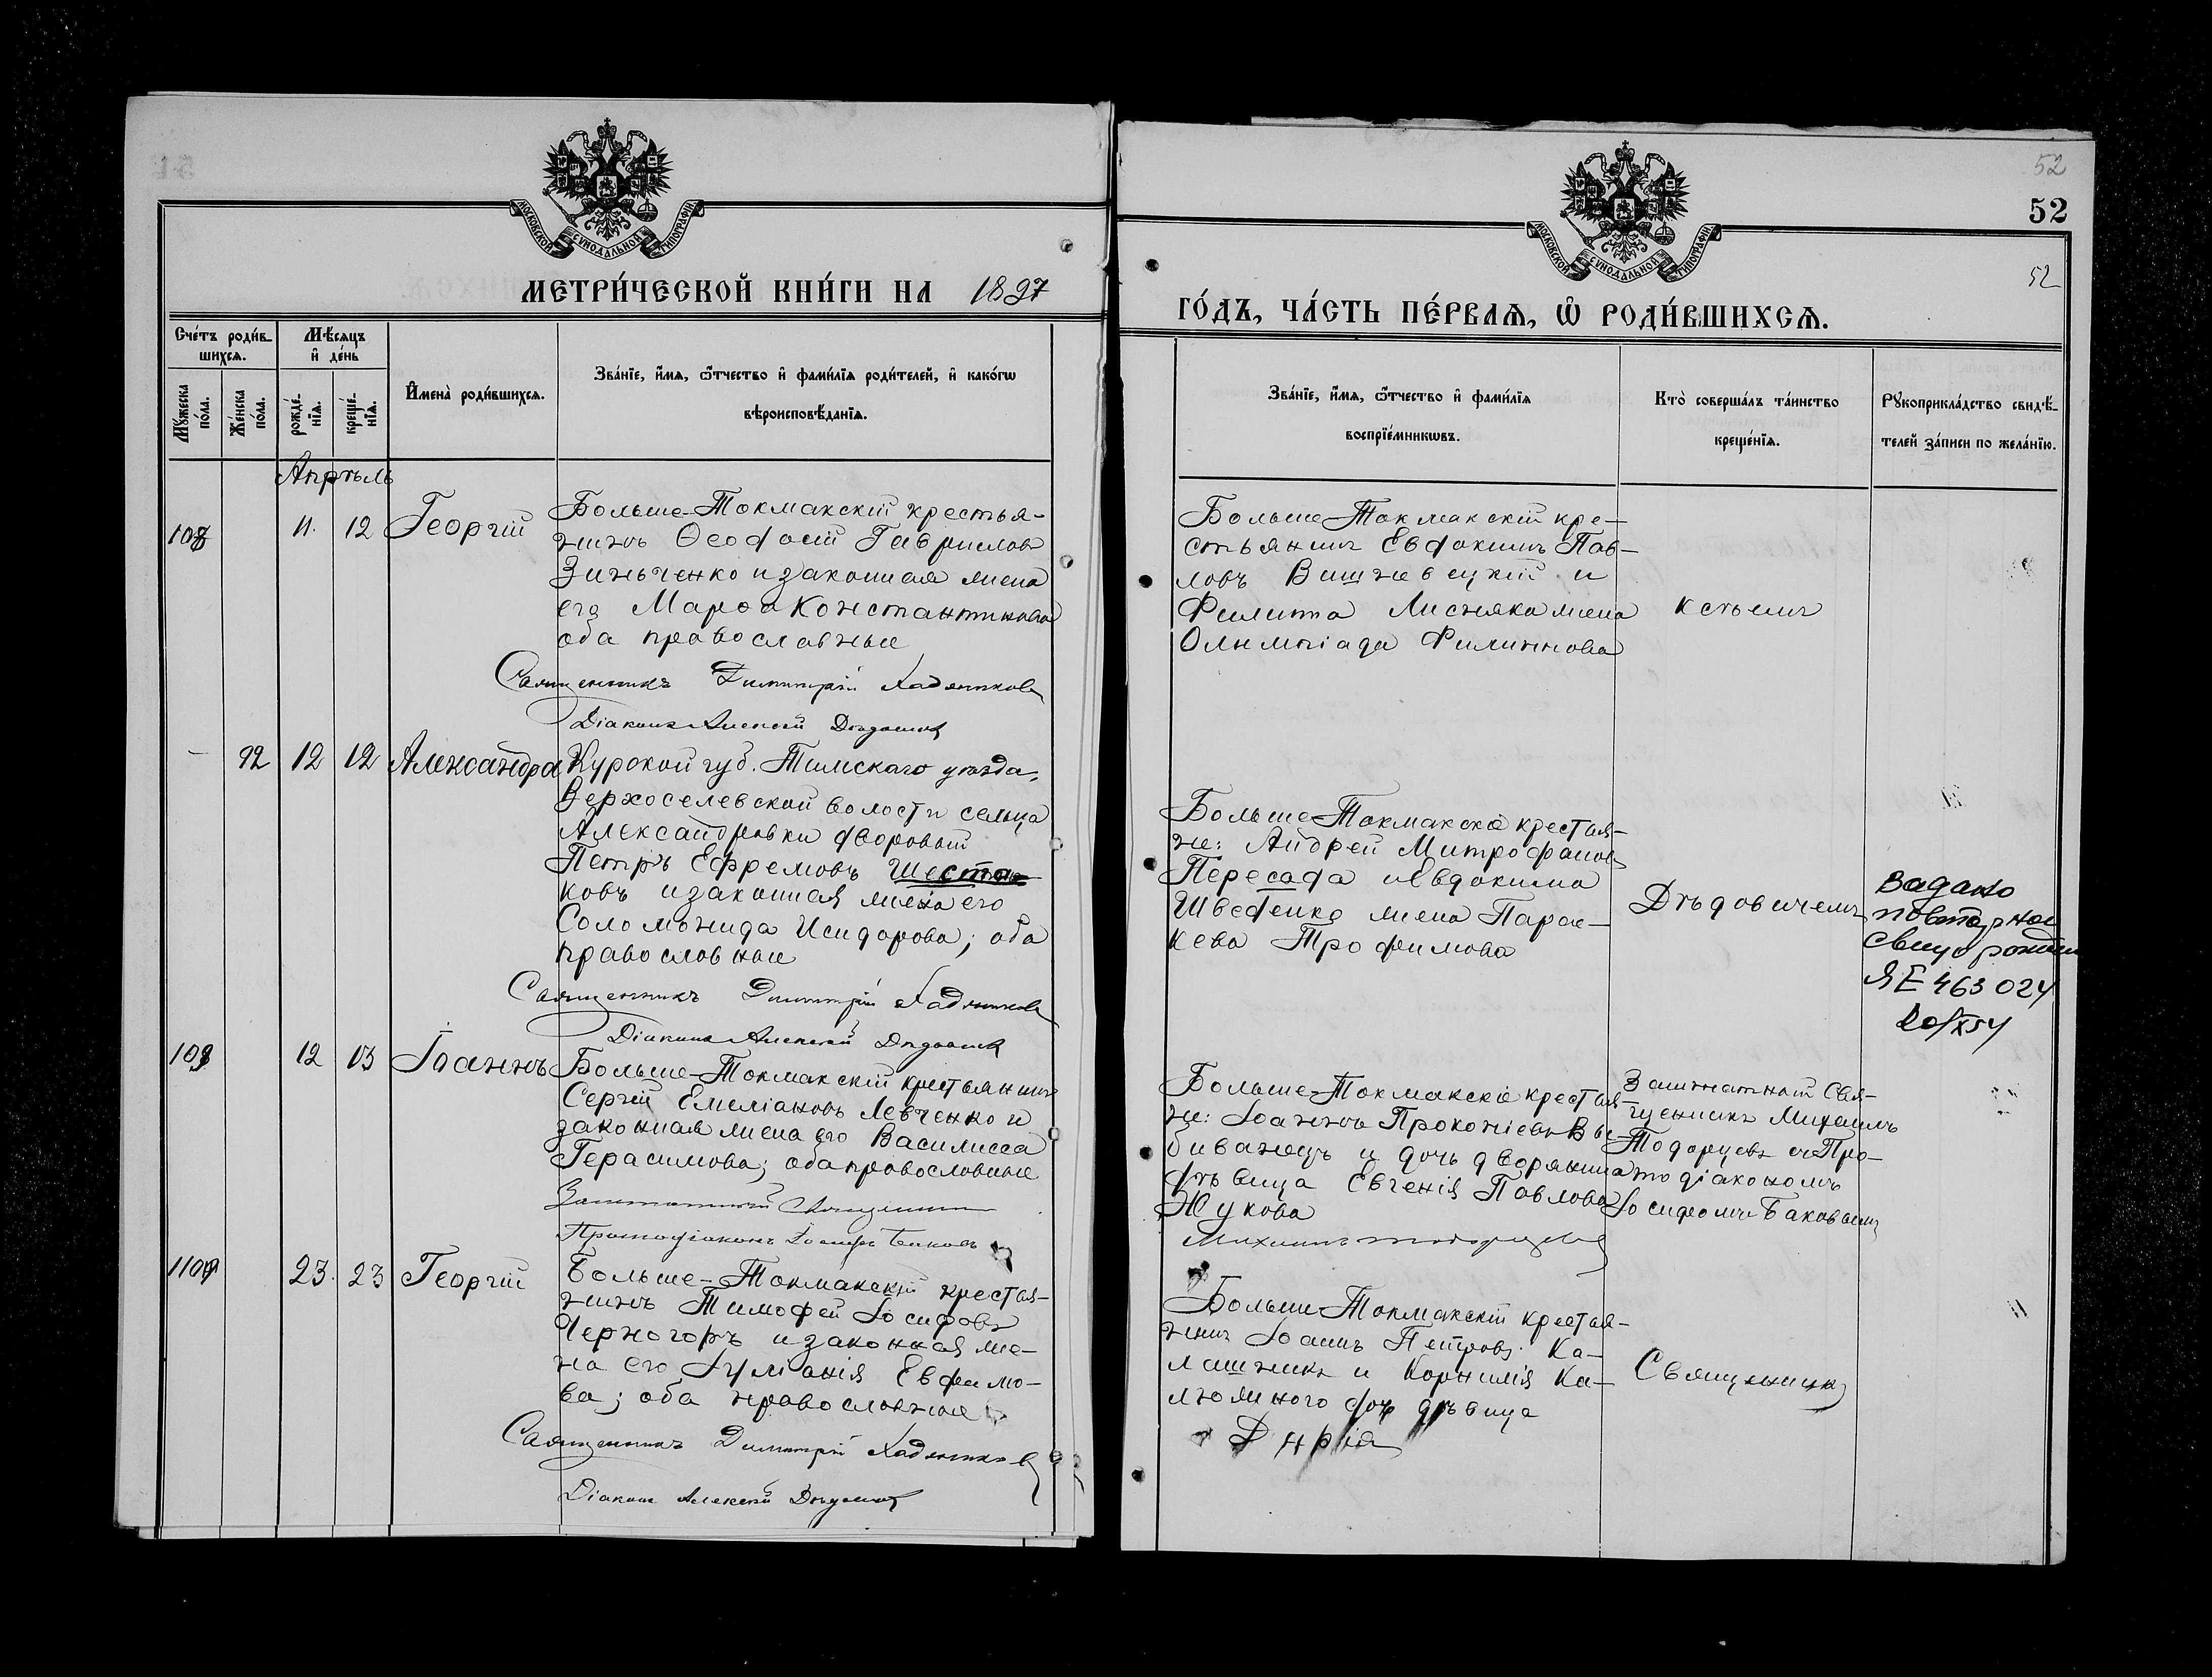 МОСКОВСКОЙ СѴНОДАЛЬНОЙ ТИПОГРАФІИ
МЕТРИ́ЧЕСКОЙ КНИ́ГИ НА 1897
Сче́тъ роди́в-
шихся.
Мѣ́сяцъ
и҆ де́нь
Мꙋ́жеска
по́ла.
Же́нска
по́ла.
рожде́-
нїя.
креще́-
нїя.
И҆мена̀ роди́вшихся.
Зва́нїе, и҆́мя, ѻ҆́тчество и҆ фами́лїя роди́телей, и҆ како́гѡ
вѣроисповѣ́данїя.
Апрѣль
108 11. 12 Георгій
Больше-Токмакскій крестья-
нинъ Ѳеофаній Гавриловъ
Зинченко и законная жена
его Марѳа Константинова
оба православные
Священникъ Димитрій
Діаконъ Алексѣй
92 12 12 Александра
Курской губ. Тимскаго уѣзда,
Верхоселевской волости сельца
Александровки дворовый
Петръ Ефремовъ Шеста-
ковъ и законная жена его
Соломонида Исидорова; оба
православные
Священникъ Димитрій
Діаконъ Алексѣй
109 12 13 Іоаннъ
Больше-Токмакскій крестьянинъ
Сергій Емеліановъ Левченко и
законная жена его Василисса
Герасимова; оба православные
Заштатный Священникъ
Протодіаконъ Іосифъ Баковъ
110 23. 23 Георгій
Больше-Токмакскій крестья-
нинъ Тимофей Іосифовъ
Черногоръ и законная же-
на его Іуліанія Евфимо-
ва; оба православные
Священникъ Димитрій
Діаконъ Алексѣй
52
52
МОСКОВСКОЙ СѴНОДАЛЬНОЙ ТИПОГРАФІИ
52
ГО́ДЪ, ЧА́СТЬ ПЕ́РВАЯ, Ѽ РОДИ́ВШИХСЯ.
Зва́нїе, и҆́мя, ѻ҆́тчество и҆ фами́лїя
воспрїе́мникѡвъ.
Кто̀ соверша́лъ та́инство
креще́нїя.
Рꙋкоприкла́дство свидѣ́-
телей за́писи по жела́нїю.
Больше-Токмакскій кре-
стьянинъ Евфокимъ Пав-
ловъ Вишневецкій и
Филипа Лисняка жена
Олимпіада Филиппова
Больше-Токмакскіе крестья-
не: Андрей Митрофановъ
Пересада и Евдокима
Шведенко жена Парас-
кева Трофимова
Дѣдовичемъ
Видано
повторное
свид о рожден
ЯЕ 463024
20/X54
Больше-Токмакскіе крестья-
не: Іоаннъ Прокопіевъ Вы-
биванецъ и дочь дворянина
дѣвица Евгенія Павлова
Жукова
Заштатный Свя-
щенникъ Михаилъ
Тодорцевъ съ Про-
тодіакономъ
Іосифомъ Баковымъ
Михаилъ Тодорцевъ
Больше-Токмакскій крестья-
нинъ Іоаннъ Петровъ Ка-
лашникъ и Корнилія Ка-
люжного дочь дѣвица
Дарія
Священникъ